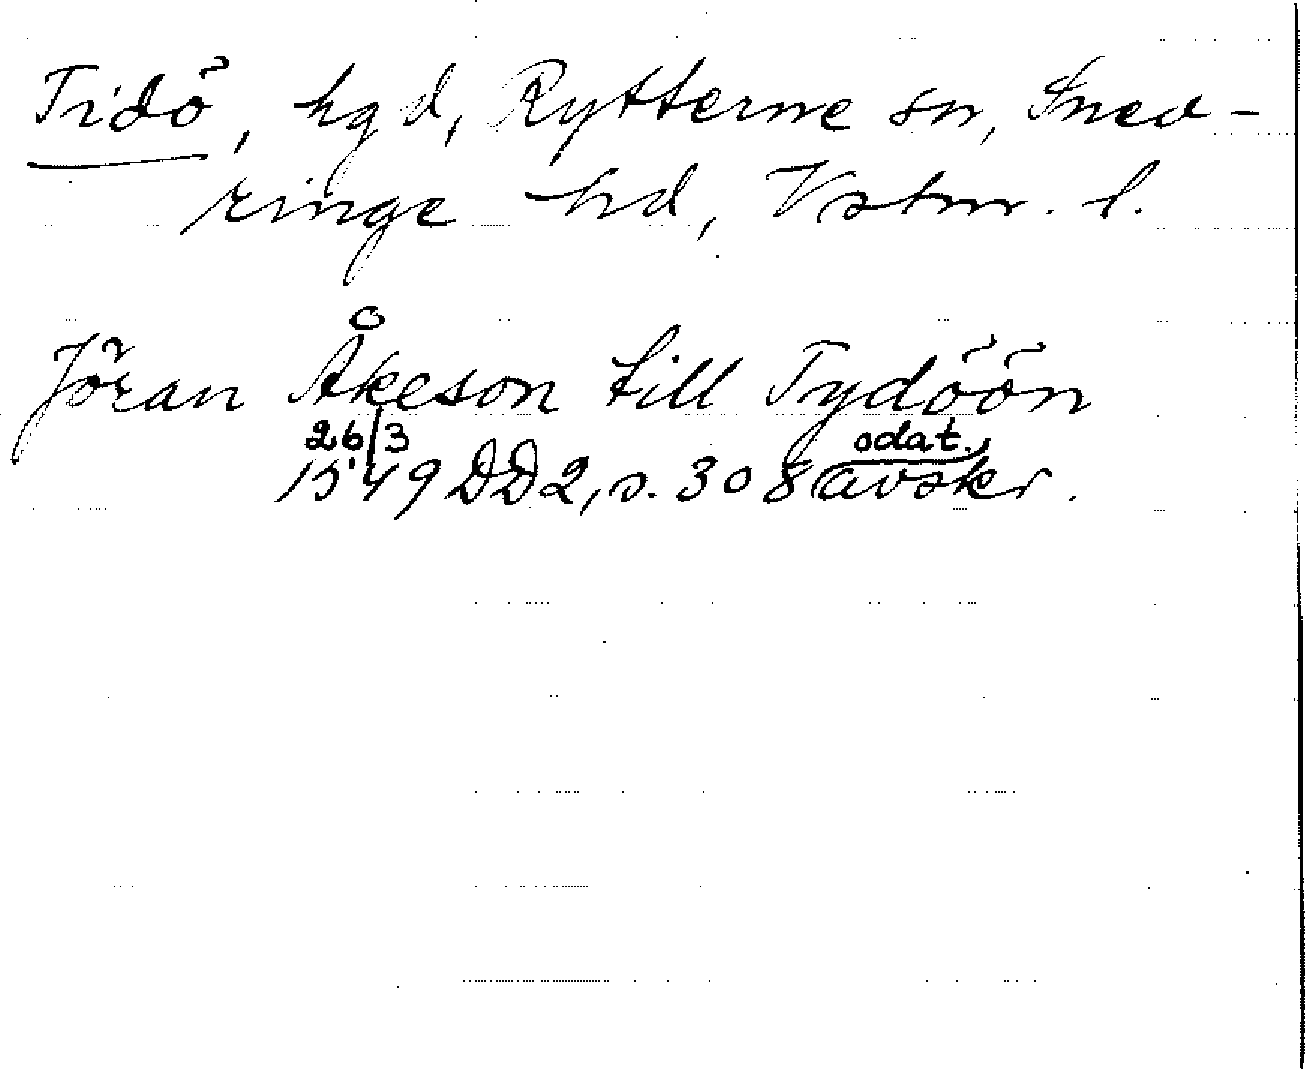 Tidö, hgd, Rytterne sn, Snev-
ringe hd, Vstm. l.
Jöran Åkeson till Tydöön
26/3 odat.
1549 DD2, s. 308 avskr.